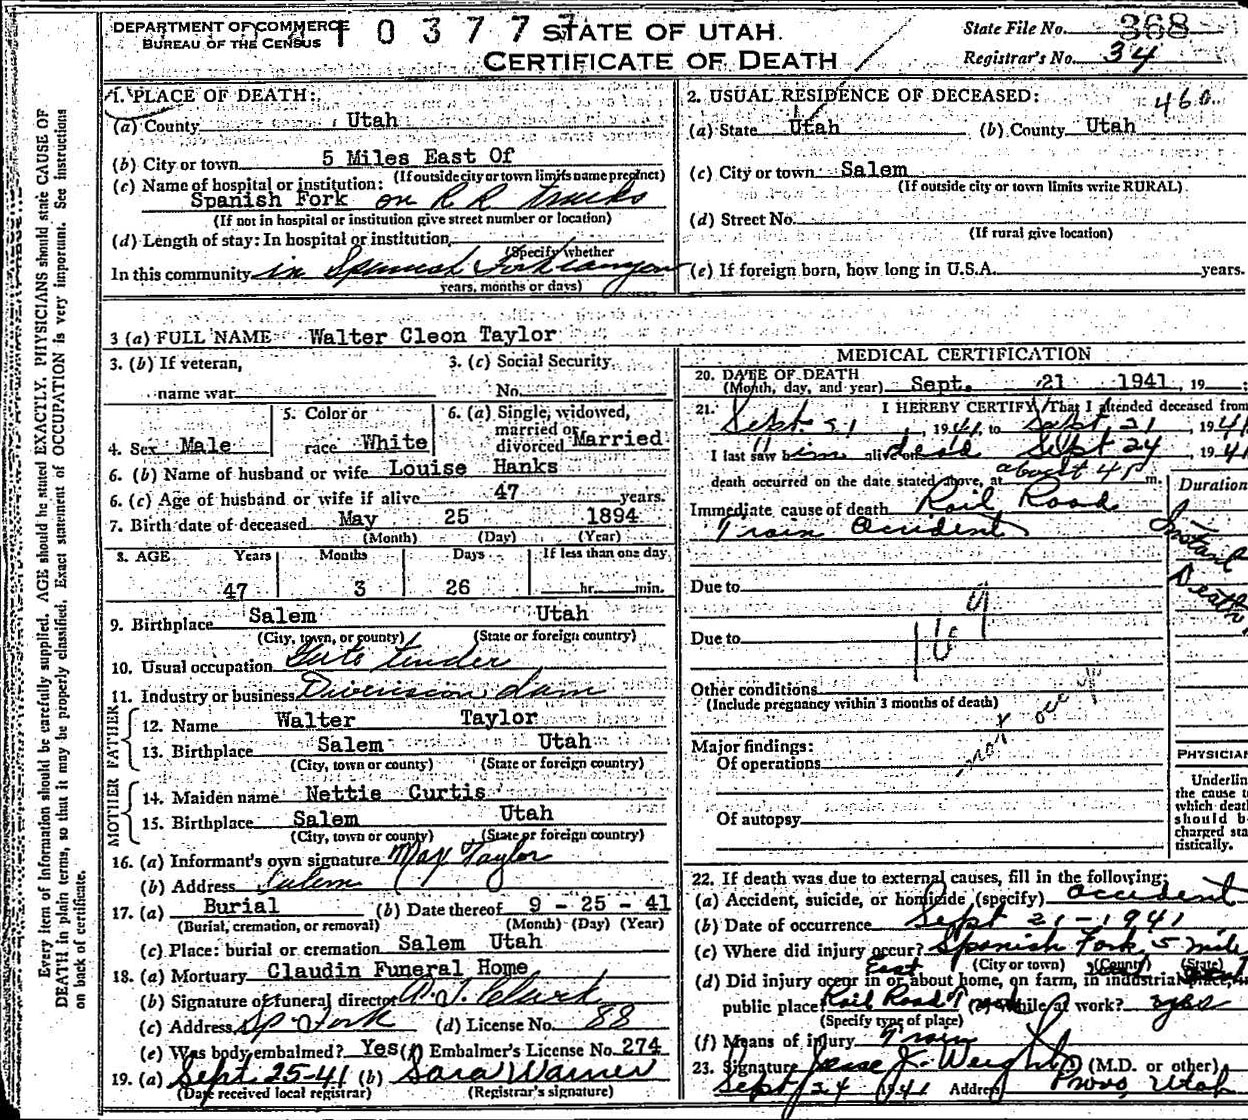 DEPARTMENT OF COMMERCE
BUREAU OF THE CENSUS
10377
STATE OF UTAH.
CERTIFICATE OF DEATH
State File No. 368
Registrar's No. 34
Every item of information should be carefully supplied. AGE should be stated EXACTLY. PHYSICIANS should state CAUSE OF
DEATH in plain terms, so that it may be properly classified. Exact statement of OCCUPATION is very important. See instructions
on back of certificate.
1. PLACE OF DEATH:
(a) County Utah
(b) City or town 5 Miles East Of
(If outside city or town limits name precinct)
(c) Name of hospital or institution:
Spanish Fork on R R tracks
(If not in hospital or institution give street number or location)
(d) Length of stay: In hospital or institution
(Specify whether
In this community in Spanish Fork Canyon
years, months or days)
2. USUAL RESIDENCE OF DECEASED:
460
(a) State Utah (b) County Utah
(c) City or town Salem
(If outside city or town limits write RURAL)
(d) Street No.
(If rural give location)
(e) If foreign born, how long in U.S.A. years.
3 (a) FULL NAME Walter Cleon Taylor
3. (b) If veteran,
name war
3. (c) Social Security
No.
4. Sex Male
5. Color or
race White
6. (a) Single, widowed,
married or
divorced Married
6. (b) Name of husband or wife Louise Hanks
6. (c) Age of husband or wife if alive 47 years.
7. Birth date of deceased May 25 1894
(Month) (Day) (Year)
8. AGE Years Months Days If less than one day
47 3 26 hr. min.
9. Birthplace Salem Utah
(City, town, or county) (State or foreign country)
10. Usual occupation Gate tender
11. Industry or business Diverision dam
FATHER
12. Name Walter Taylor
13. Birthplace Salem Utah
(City, town or county) (State or foreign country)
MOTHER
14. Maiden name Nettie Curtis
15. Birthplace Salem Utah
(City, town or county) (State or foreign country)
16. (a) Informant's own signature Max Taylor
(b) Address Salem
17. (a) Burial (b) Date thereof 9 - 25 - 41
(Burial, cremation, or removal) (Month) (Day) (Year)
(c) Place: burial or cremation Salem Utah
18. (a) Mortuary Claudin Funeral Home
(b) Signature of funeral director A. J. Clark
(c) Address Sp Fork (d) License No. 88
(e) Was body embalmed? Yes (f) Embalmer's License No. 274
19. (a) Sept. 25-41 (b) Sara Warner
(Date received local registrar) (Registrar's signature)
MEDICAL CERTIFICATION
20. DATE OF DEATH
(Month, day, and year) Sept. 21 1941, 19 ;
21. I HEREBY CERTIFY, That I attended deceased from
Sept 21, 1941, to Sept 21, 1941
I last saw him alive dead Sept 24, 1941
death occurred on the date stated above, at about 4 P m.
Immediate cause of death Rail Road
Train Accident
Duration
Instant
Death
Due to
Due to
169
Other conditions
(Include pregnancy within 3 months of death)
not occ
Major findings:
Of operations
Of autopsy
PHYSICIAN
Underlin
the cause t
which deat
should b
charged sta
tistically.
22. If death was due to external causes, fill in the following:
(a) Accident, suicide, or homicide (specify) accident
(b) Date of occurrence Sept 21-1941
(c) Where did injury occur? Spanish Fork 5 mile
East (City or town) (County) (State)
(d) Did injury occur in or about home, on farm, in industrial place, in
public place? Rail Road (e) While at work? yes
(Specify type of place)
(f) Means of injury Train
23. Signature Jesse J. Weight (M.D. or other)
Sept 24 1941 Address Provo, Utah